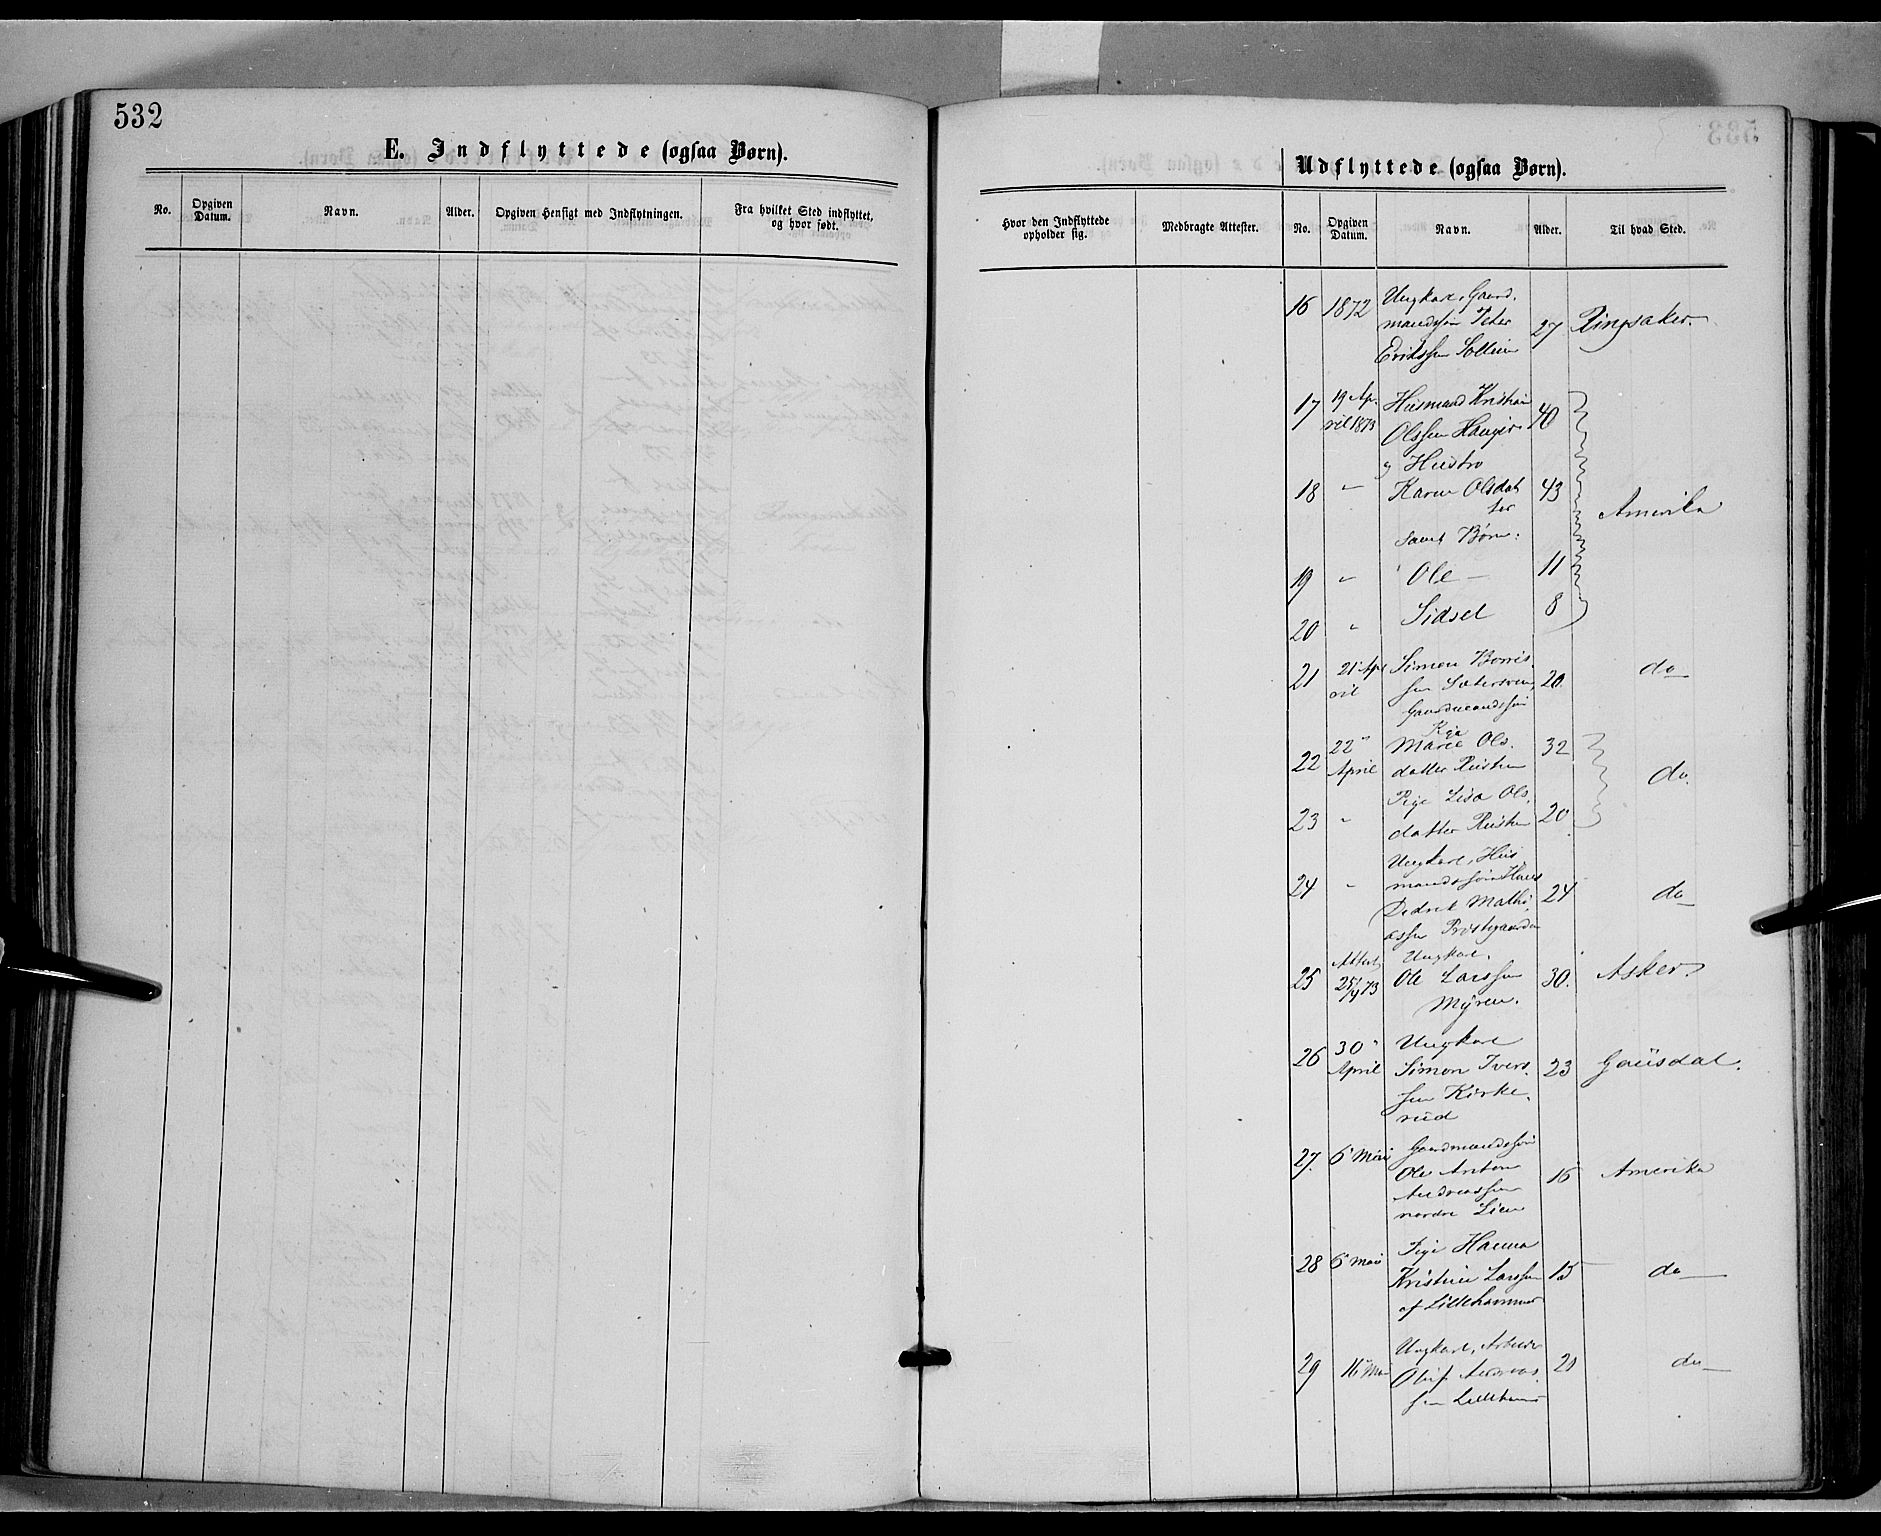 532
E. Indflyttede (ogsaa Børn).
No.
Opgiven Datum.
Navn.
Alder.
Opgiven Hensigt med Indflytningen.
Fra hvilket Sted indflyttet, og hvor født.
Udflyttede (ogsaa Børn).
Hvor den Indflyttede opholder sig.
Medbragte Attester.
No.
Opgiven Datum.
Navn.
Alder.
Til hvad Sted.
16 1872 Ungkarl, Gaard-
mandssøn Peter 27 Ringsaker.
Erikssen
17 19 Ap- Husmand Kristian 40
ril 1873 Olssen
og Hustro
18 " Karen Olsdat 43 Amerika
ter
samt Børn:
19 " Ole 11
20 " Sidsel 8
21 21 Ap Simen 20 do
ril ssen
Gaardmandssøn
22 22 Pige
April Marie Ols- 32 do.
datter
23 " Pige Lisa Ols- 20
datter
24 " Ungkarl, Hus
mandssøn Hans 24 do
Dedrik Mathi-
assen Prestgaarden
25 Attest Ungkarl.
25/4 73 Ole Larssen 30. Asker
Myren.
26 30 Ungkarl
April Simon Ivers- 23 Gausdal.
sen Kirke-
rud
27. 6 Mai Gaardmandssøn
Ole Anton 16 Amerika
Andreassen
nordre Lien
28 6 Mai Pige Hanna
Kristine Larssen 15 do
af Lillehammer
29 16 Mai Ungkarl, Arbeider
Oluf Andreas- 21 do
sen Lillehammer